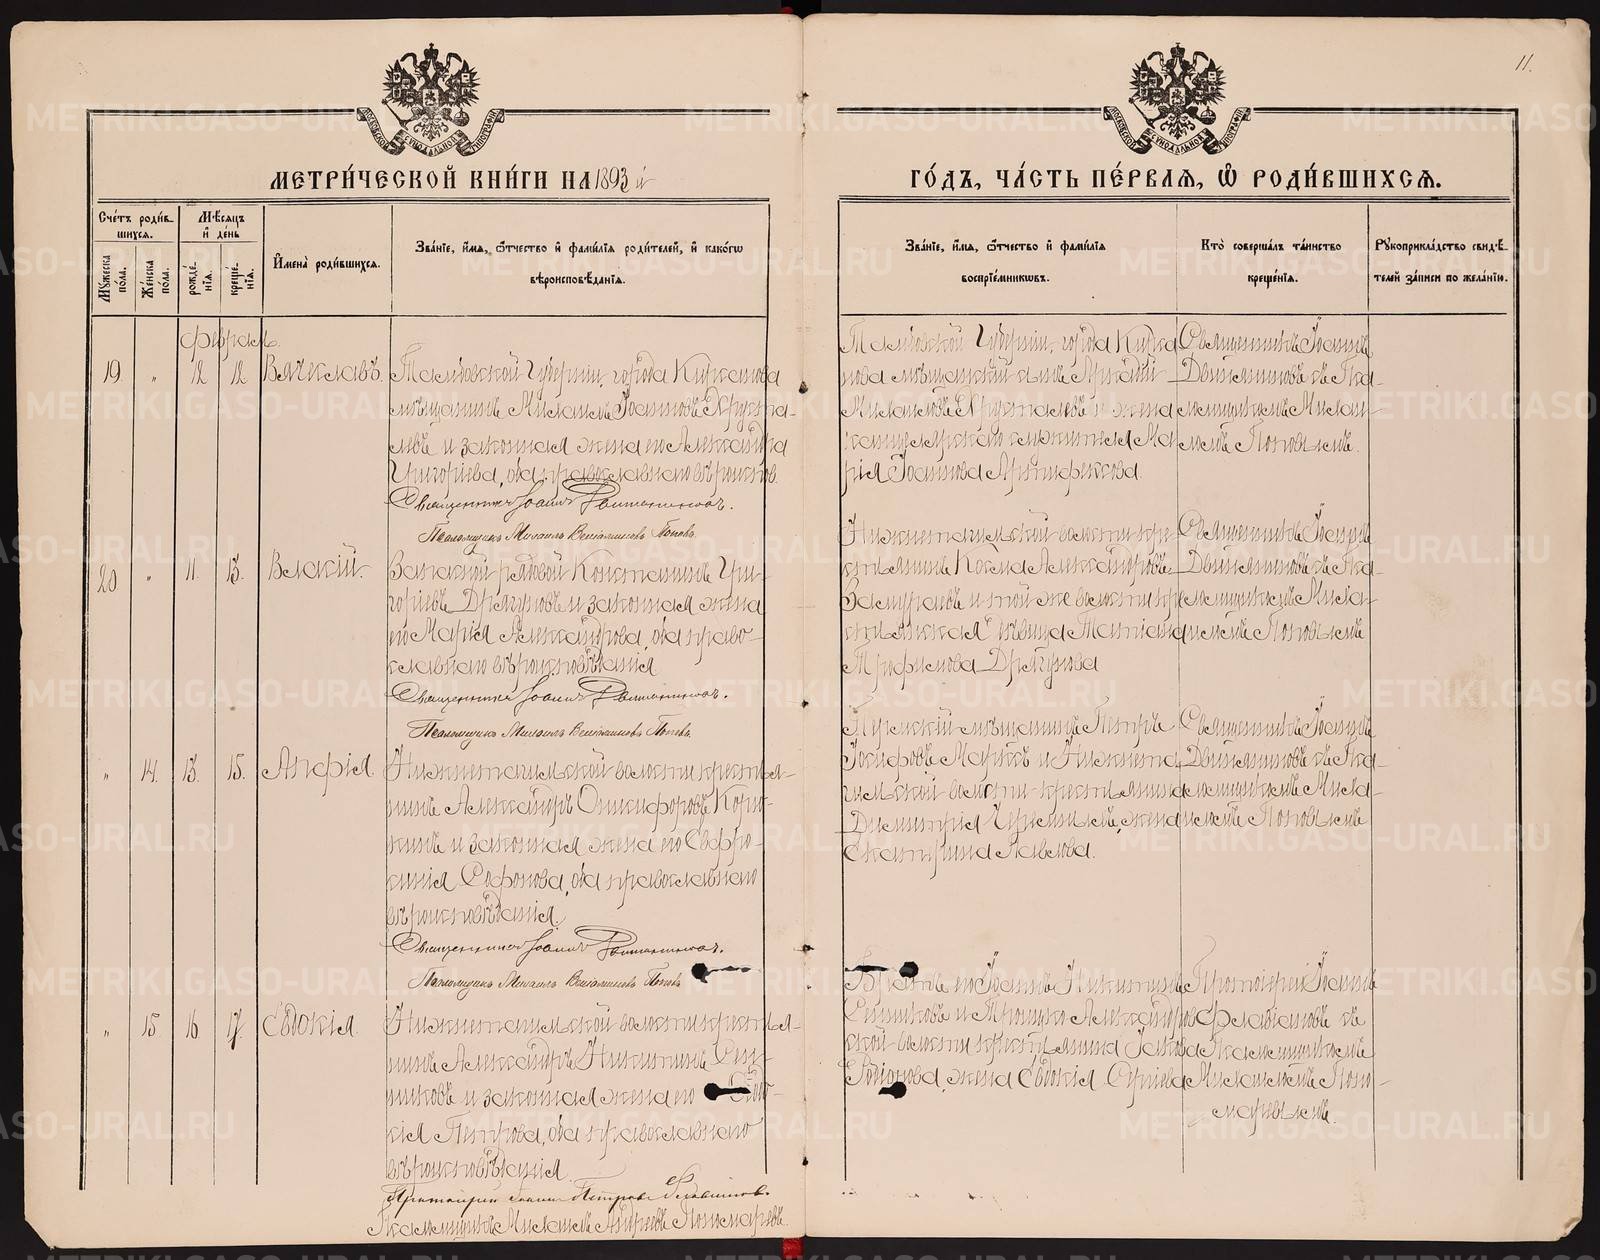 11.
МЕТРИ́ЧЕСКОЙ КНИ́ГИ НА 1893 й
ГО́ДЪ, ЧА́СТЬ ПЕ́РВАЯ, Ѡ РОДИ́ВШИХСЯ.
Сче́тъ роди́в-
шихся.
Мꙋ́жеска по́ла.
Же́нска по́ла.
Мѣ́сяцъ и де́нь
рожде́-нія.
креще́-нія.
И́мена роди́вшихся.
Зва́ніе, и́мя, ѻ́тчество и фами́лія роди́телей, и како́гѡ
вѣроисповѣ́данія.
Зва́ніе, и́мя, ѻ́тчество и фами́лія
воспріе́мникѡвъ.
Кто̀ соверша́лъ та́инство
креще́нія.
Рꙋкоприкла́дство свидѣ́-
телей за́писи по жела́нію.
Февраль
19 " 12 12 Вячеславъ.
Тамбовской Губернии, города Кирсанова
мѣщанинъ Михаилъ Іоанновъ Хруста-
левъ и законная жена его Александра
Григориева, оба православнаго вѣроиспов.
Священникъ Іоаннъ
Псаломщикъ Михаилъ Веніаминовъ Поповъ.
Тамбовской Губернии, города Кирса
нова мѣщанский сынъ Аркадий
Михаиловъ Хрусталевъ и жена
канцелярскаго служителя Ма
рія Іоаннова
Священникъ Іоаннъ
съ Пса-
ломщикомъ Михаи-
ломъ Поповымъ.
20 " 11. 13. Власій.
Запасной рядовой Константинъ Гри-
горіевъ Дрягуновъ и законная жена
его Марія Александрова, оба право-
славнаго вѣроисповѣданія
Священникъ Іоаннъ
Псаломщикъ Михаилъ Веніаминовъ Поповъ.
Нижнетагильской волости кре-
стьянинъ Косма Александровъ
и той же волости кре
стьянская дѣвица Татіана
Трофимова Дрягунова
Священникъ Іоаннъ
съ Пса-
ломщикомъ Миха-
иломъ Поповымъ
" 14. 13. 15. Анфія
Нижнетагильской волости крестья-
нинъ Александръ Онисифоровъ
и законная жена его Евфро-
синія Софонова, оба православнаго
вѣроисповѣданія.
Священникъ Іоаннъ
Псаломщикъ Михаилъ Веніаминовъ Поповъ
Пермский мѣщанинъ Петръ
Іосифовъ и Нижнета
гильской волости крестьянина
Димитрія жена
Екатерина Павлова.
Священникъ Іоаннъ
съ Пса-
ломщикомъ Миха-
иломъ Поповымъ
" 15. 16. 17. Евдокія.
Нижнетагильской волости крестья-
нинъ Александръ Никитинъ Сен-
никовъ и законная жена его Евдо-
кія Петрова, оба православнаго
вѣроисповѣданія.
Протоіерей Іоаннъ Петровъ Флавіановъ.
Псаломщикъ Михаилъ Андреевъ Пономаревъ.
Братъ его Іоаннъ Никитинъ
Сенниковъ и Троицко Александров
ской волости крестьянина Іакова
Родіонова жена Евдокія Сергіева
Протоіерей Іоаннъ
Флавіановъ съ
Псаломщикомъ
Михаиломъ Поно-
маревымъ.
METRIKI.GASO-URAL.RU